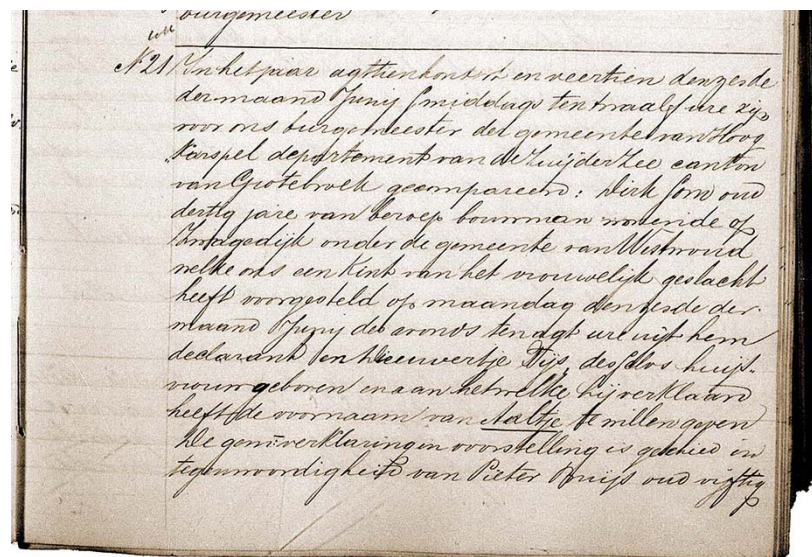 burgemeester
N 21 In het jaar agthien hont en veertien den zesde
der maand Junij smiddags ten twaalf ure zijn
voor ons burgemeester der gemeente van Hoog
Karspel departement van de Zuijder Zee canton
van Grotebroek gecompareerd: Dirk oud
dertig jare van beroep bouwman wonende op
onder de gemeente van Westwoud
welke ons een Kint van het vrouwelijk geslacht
heeft voorgesteld op maandag den zesde der
maand Junij des avonds ten agt ure uijt hem
declarant en Dieuwertje Tijs, huijs-
vrouw geboren en aan hetwelke hij verklaard
heeft de voornaam van Aaltje te willen geven
De gem: verklaring en voorstelling is geschied in
tegenwoordigheid van Pieter oud vijftig